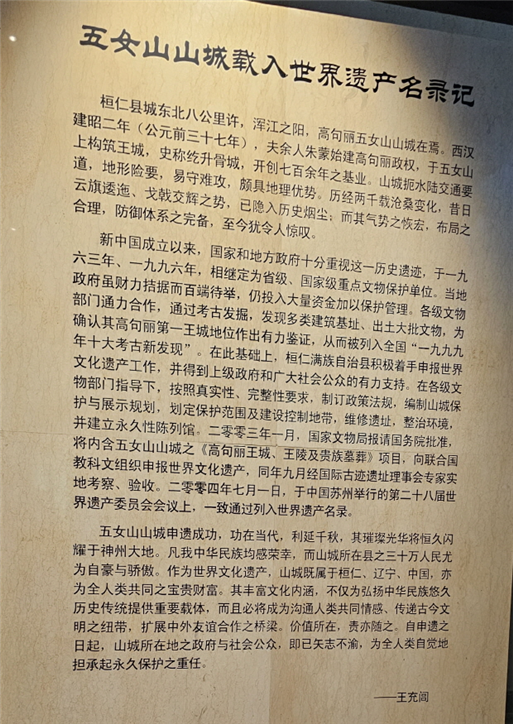 五女山山城载入世界遗产名录记
桓仁县城东北八公里许，浑江之阳，高句丽五女山山城在焉。西汉
建昭二年（公元前三十七年），夫余人朱蒙始建高句丽政权，于五女山
上构筑王城，史称纥升骨城，开创七百余年之基业。山城扼水陆交通要
道，地形险要，易守难攻，颇具地理优势。历经两千载沧桑变化，昔日
云旗逶迤、戈戟交辉之势，已隐入历史烟尘；而其气势之恢宏，布局之
合理，防御体系之完备，至今犹令人惊叹。
新中国成立以来，国家和地方政府十分重视这一历史遗迹，于一九
六三年、一九九六年，相继定为省级、国家级重点文物保护单位。当地
政府虽财力拮据而百端待举，仍投入大量资金加以保护管理。各级文物
部门通力合作，通过考古发掘，发现多类建筑基址、出土大批文物，为
确认其高句丽第一王城地位作出有力鉴证，从而被列入全国“一九九九
年十大考古新发现”。在此基础上，桓仁满族自治县积极着手申报世界
文化遗产工作，并得到上级政府和广大社会公众的有力支持。在各级文
物部门指导下，按照真实性、完整性要求，制订政策法规，编制山城保
护与展示规划，划定保护范围及建设控制地带，维修遗址，整治环境，
并建立永久性陈列馆。二零零三年一月，国家文物局报请国务院批准，
将内含五女山山城之《高句丽王城、王陵及贵族墓葬》项目，向联合国
教科文组织申报世界文化遗产，同年九月经国际古迹遗址理事会专家实
地考察、验收。二零零四年七月一日，于中国苏州举行的第二十八届世
界遗产委员会会议上，一致通过列入世界遗产名录。
五女山山城申遗成功，功在当代，利延千秋，其璀璨光华将恒久闪
耀于神州大地。凡我中华民族均感荣幸，而山城所在县之三十万人民尤
为自豪与骄傲。作为世界文化遗产，山城既属于桓仁、辽宁、中国，亦
为全人类共同之宝贵财富。其丰富文化内涵，不仅为弘扬中华民族悠久
历史传统提供重要载体，而且必将成为沟通人类共同情感、传递古今文
明之纽带，扩展中外友谊合作之桥梁。价值所在，责亦随之。自申遗之
日起，山城所在地之政府与社会公众，即已矢志不渝，为全人类自觉地
担承起永久保护之重任。
——王充闾